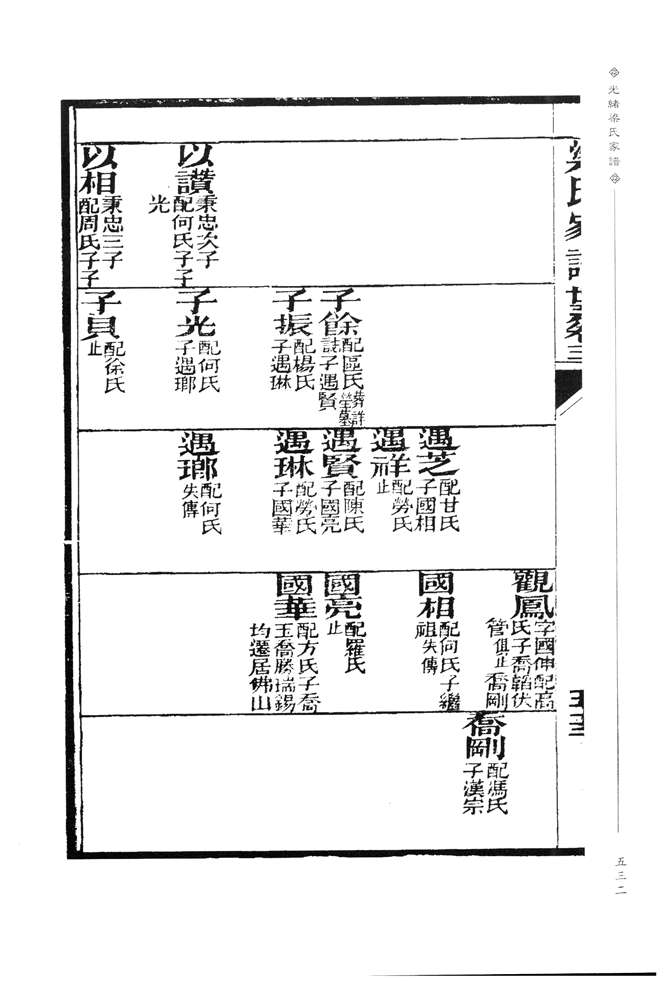 光緒梁氏家譜
梁氏家譜 卷三
以讚 秉忠次子
配何氏子子
光
以相 秉忠三子
配周氏子子
子餘 配區氏葬詳塋墓
誌子遇賢
子振 配楊氏
子遇琳
子光 配何氏
子遇瑯
子貝 配徐氏
止
遇芝 配甘氏
子國相
遇祥 配勞氏
止
遇賢 配陳氏
子國亮
遇琳 配勞氏
子國華
遇瑯 配何氏
失傳
觀鳳 字國伸配高
氏子喬韜伏
管俱止喬剛
國相 配何氏子繼
祖失傳
國亮 配羅氏
止
國華 配方氏子喬
玉喬勝瑞錫
均遷居佛山
喬剛 配馮氏
子漢宗
五三二